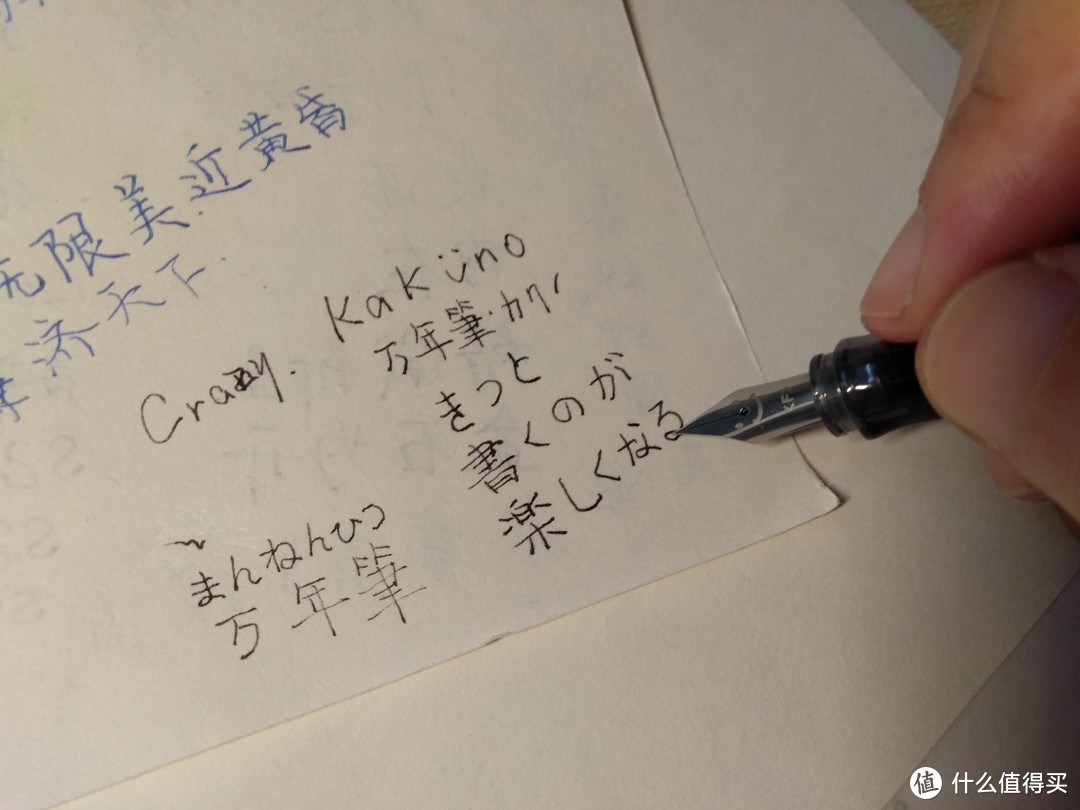 无限美近黄昏
济天下.
Kakuno
万年筆.カク、
Crazy.
きっと
書くのが
楽しくなる
まんねんひつ
万年筆
EF
值 什么值得买